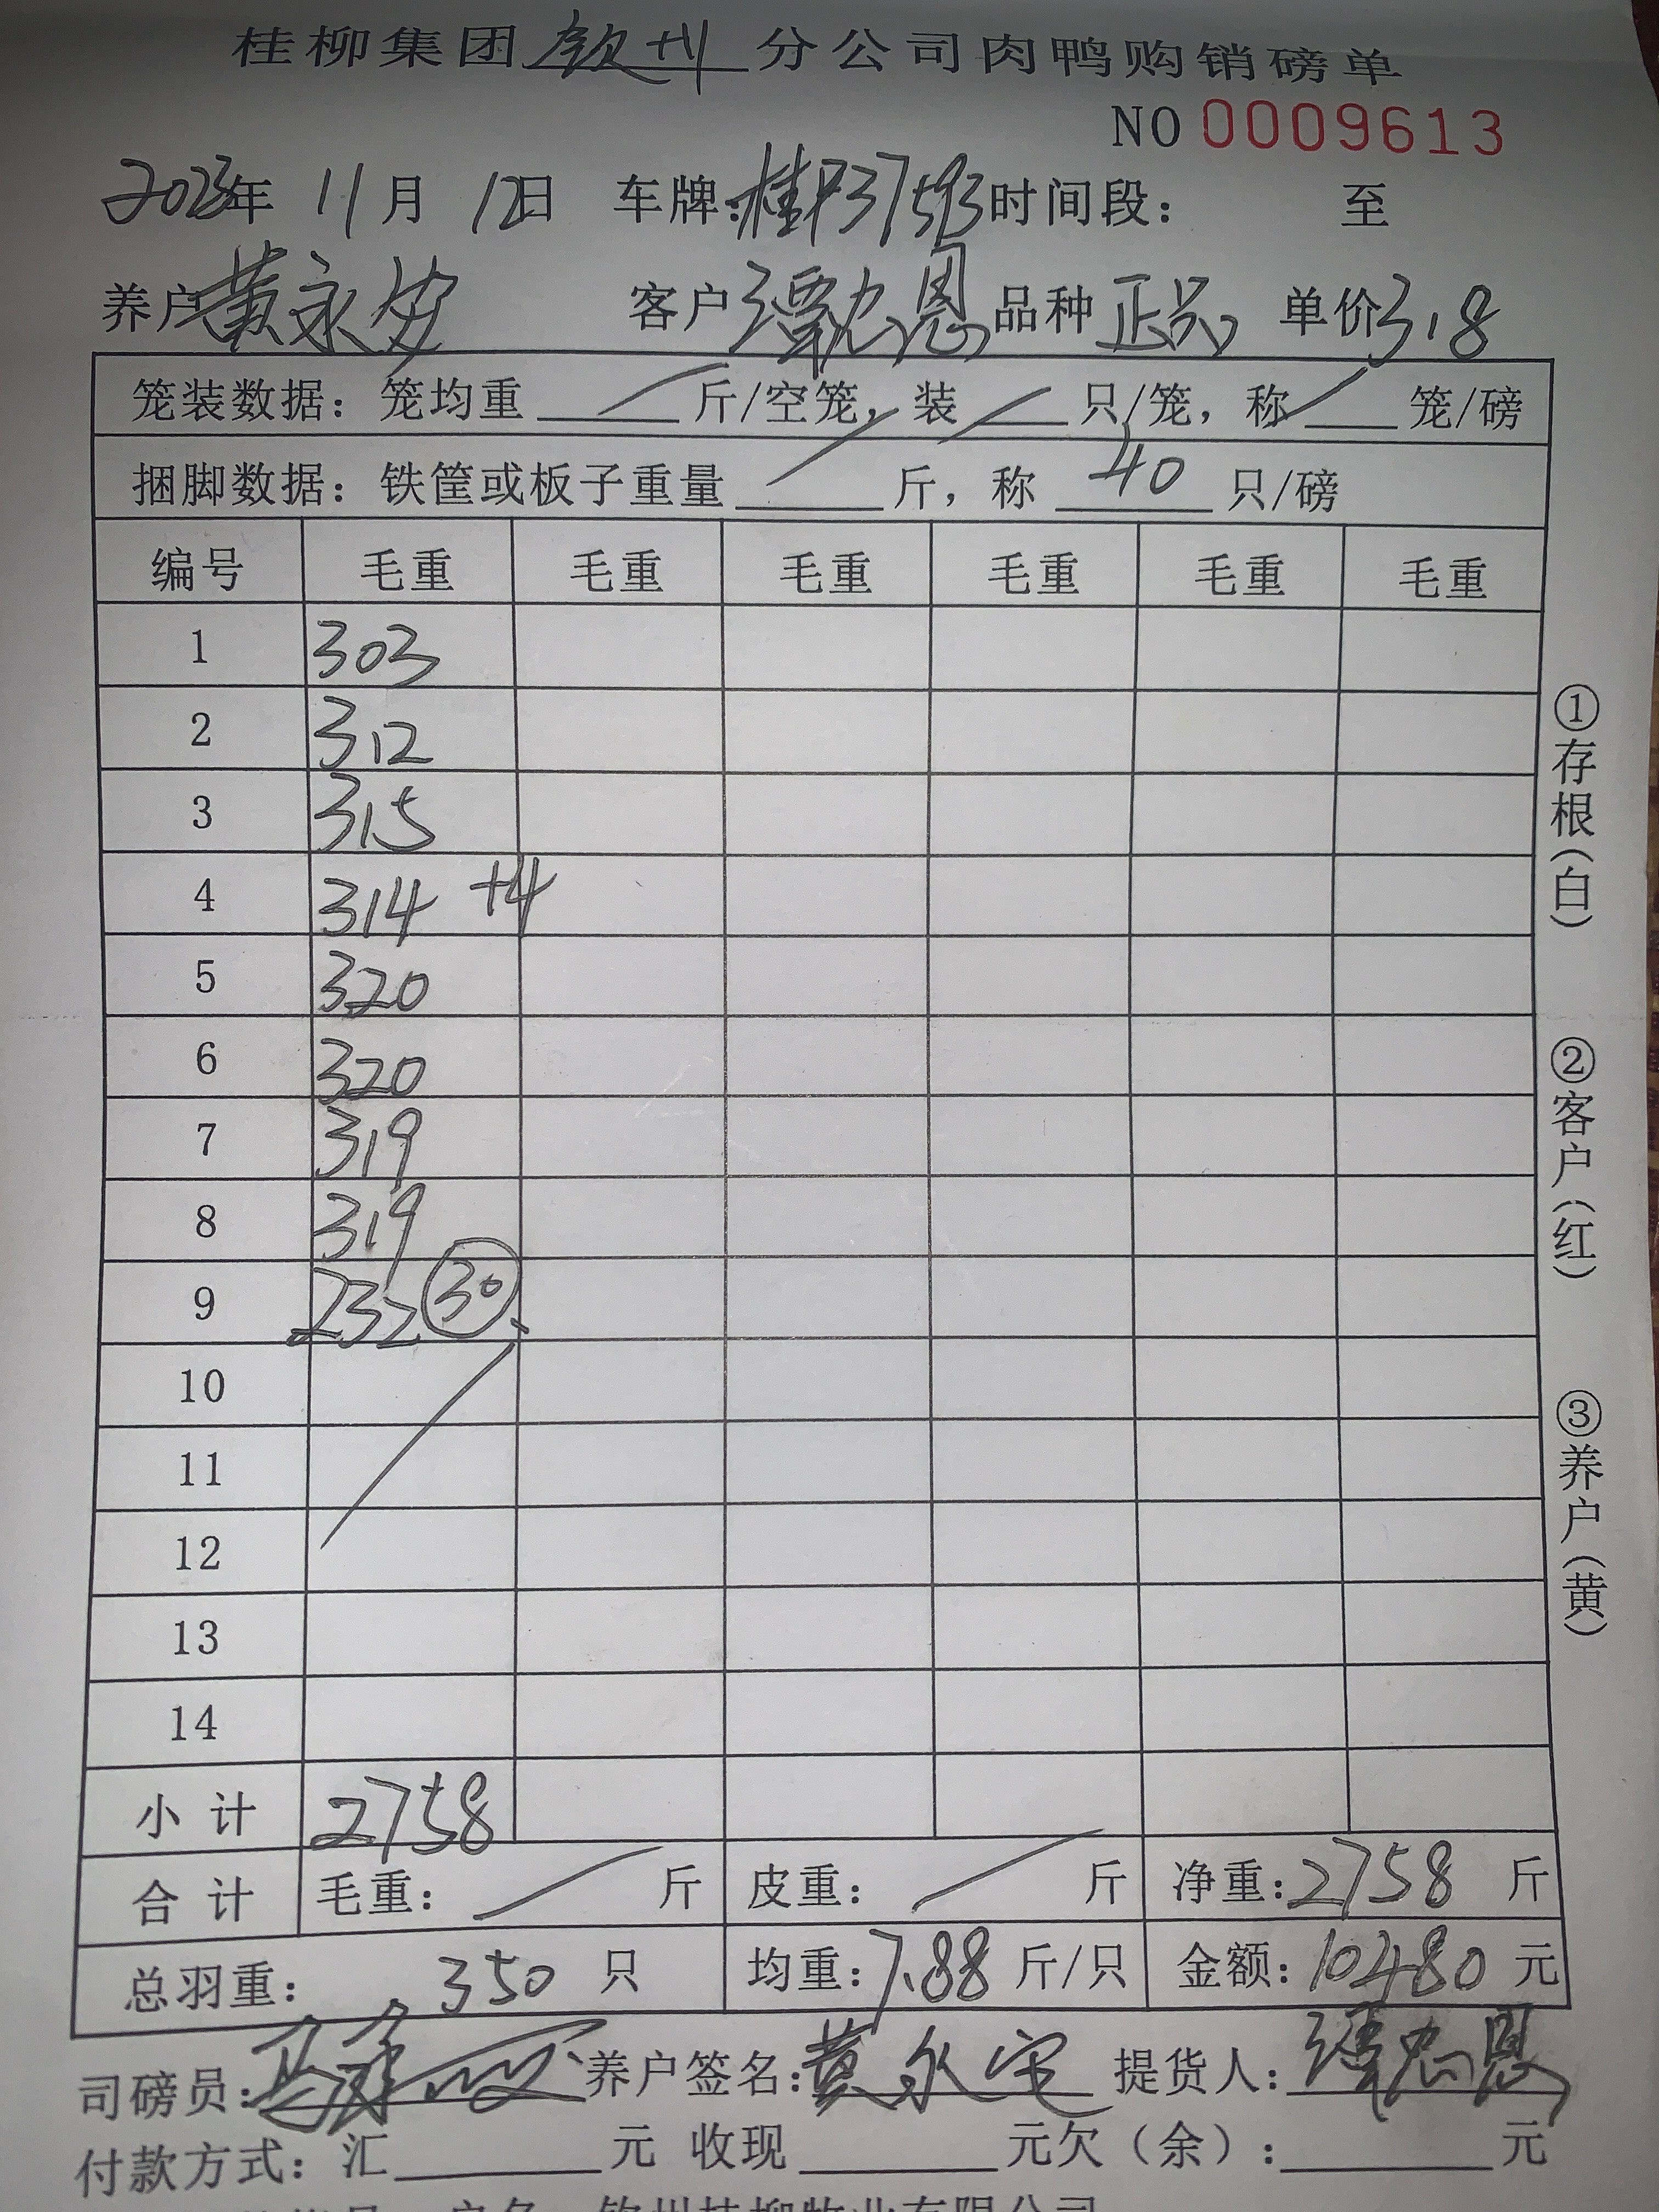 桂柳集团钦州分公司肉鸭购销磅单
NO 0009613
2023年 11月 12日 车牌:桂F37593 时间段: 至
养户黄永 客户 谭忠恩 品种 正品 单价 3.8
笼装数据: 笼均重 斤/空笼, 装 只/笼, 称 笼/磅
捆脚数据: 铁筐或板子重量 斤, 称 40 只/磅
编号 毛重 毛重 毛重 毛重 毛重 毛重
1 303
2 312
3 315
4 314 +4
5 320
6 320
7 319
8 319
9 232 30
10
11
12
13
14
小计 2758
合计 毛重: 斤 皮重: 斤 净重:2758 斤
总羽重: 350 只 均重:7.88 斤/只 金额:10480 元
司磅员: 养户签名:黄永 提货人:谭忠恩
付款方式: 汇 元 收现 元欠(余): 元
①存根(白)
②客户(红)
③养户(黄)